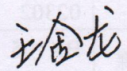 王金龙